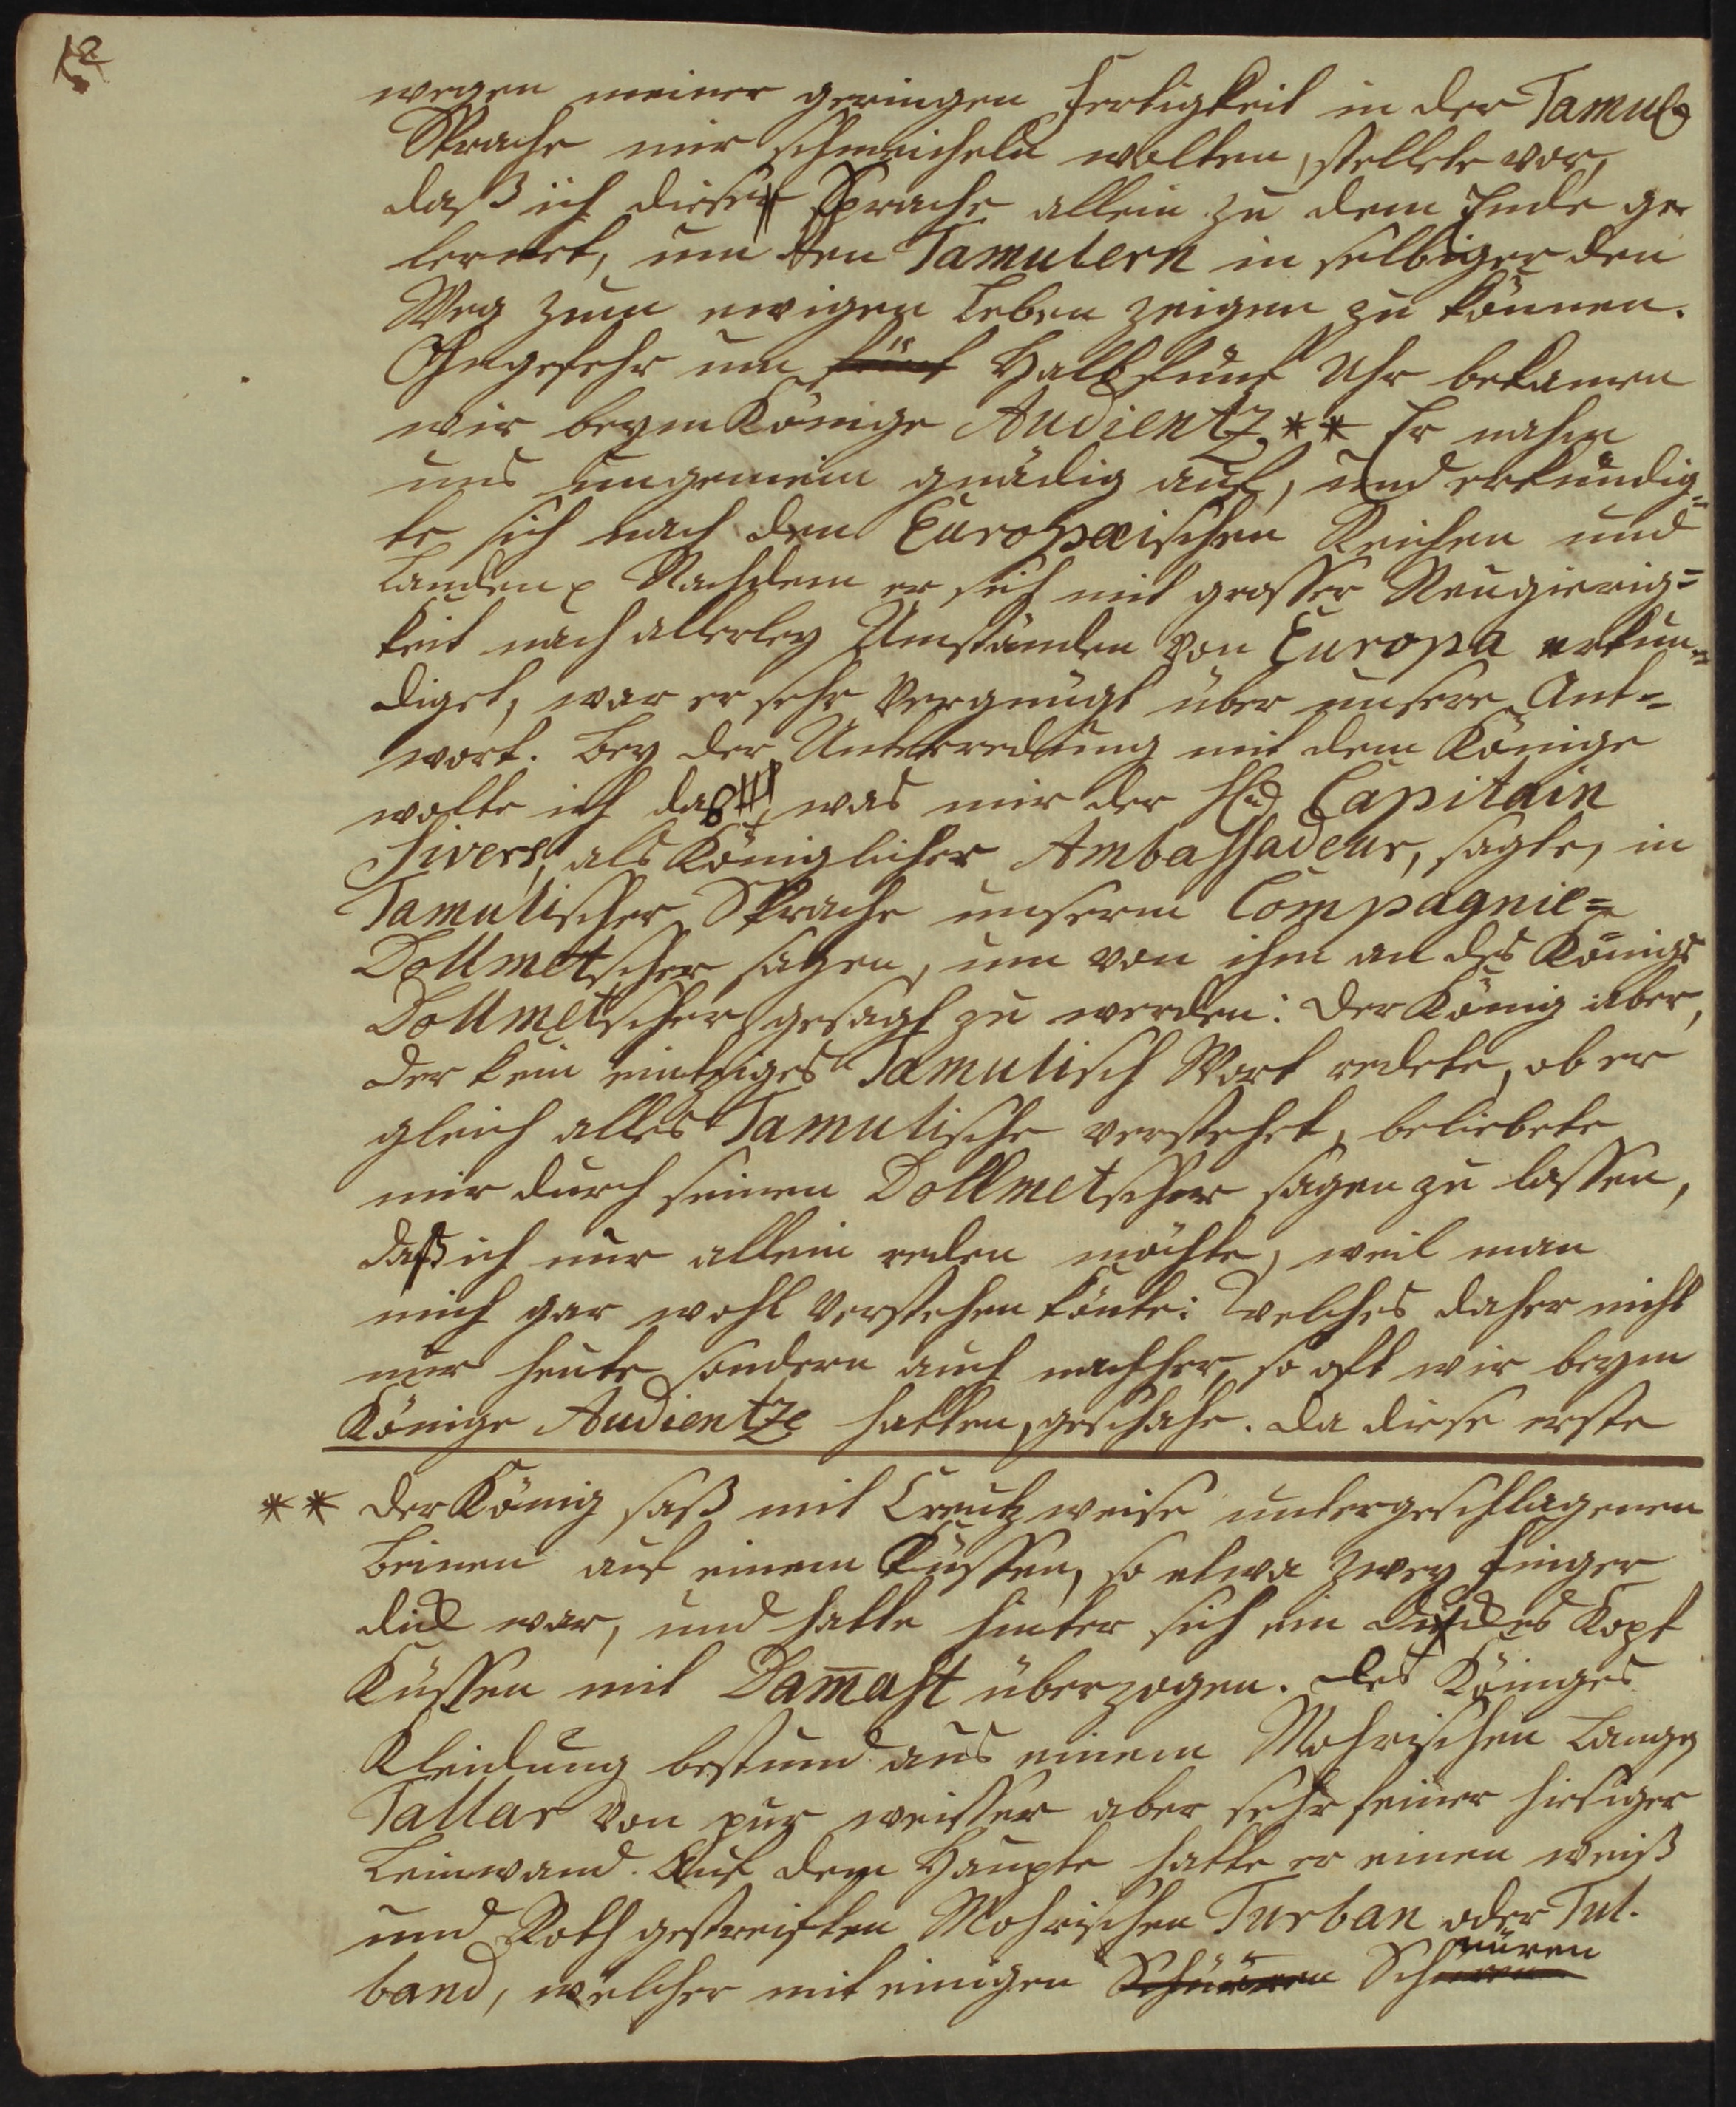 12
wegen meiner geringen Fertigkeit in der Tamul.
Sprache mir schmeicheln wolten, stellete vor,
daß ich diese Sprache allein zu dem Ende ge
lernet, um den Tamulern in selbiger den
Weg zum ewigen Leben zeigen zu können.
Ohngefehr um fünf Halb fünf Uhr bekamen
wir beym Könige Audientz. ** Er nahm
uns ungemein gnädig auf, und erkundig=
te sich nach den Europæischen Reichen und
Landen. Nachdem er sich mit grosser Neugierig=
keit nach allerley Umständen von Europa erkun=
diget, war er sehr vergnügt über unsere Ant=
wort. Bey der Unterredung mit dem Könige
wolte ich das, was mir der H. Capitain
Sivers, als Königlicher Ambassadeur, sagte, in
Tamulischer Sprache unserm Compagnie=
Dollmetscher sagen, um von ihm an des Königs
Dollmetscher gesagt zu werden: Der König aber,
der kein eintziges Tamulisch Wort redete, ob er
gleich alles Tamulische verstehet, beliebete
mir durch seinen Dollmetscher sagen zu lassen,
daß ich nur allein reden möchte, weil man
mich gar wohl verstehen könte: Welches daher nicht
nur heute sondern auch nachher, so oft wir beym
Könige Audientze hatten, geschahe. Da diese erste
** Der König saß mit Creutzweise untergeschlagenen
Beinen auf einem Küssen, so etwa zwey Finger
dick war, und hatte hinter sich ein dickes Kopf
Küssen mit Dam̅ast überzogen. Des Königes
Kleidung bestund aus einem Mohrischen Lange
Tallar von pur weisser aber sehr feiner hiesiger
Leinwand. Auf dem Haupte hatte er einen weiß
und Roth gestreiften Mohrischen Turban oder Tul.
band, welcher mit einigen Schnüren